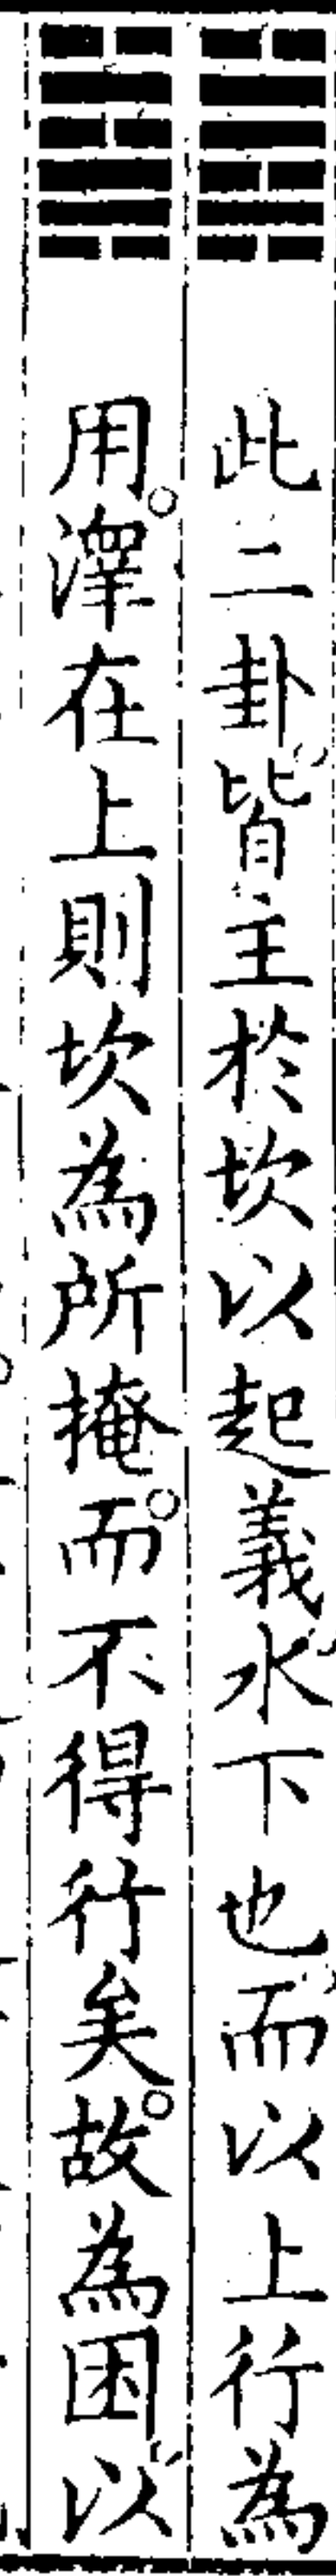 此二卦皆主於坎以起義水下也而以上行為
用澤在上則坎為所掩而不得行矣故為困以